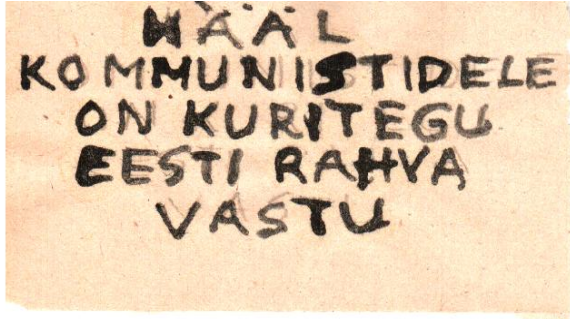 HÄÄL
KOMMUNISTIDELE
ON KURITEGU
EESTI RAHVA
VASTU